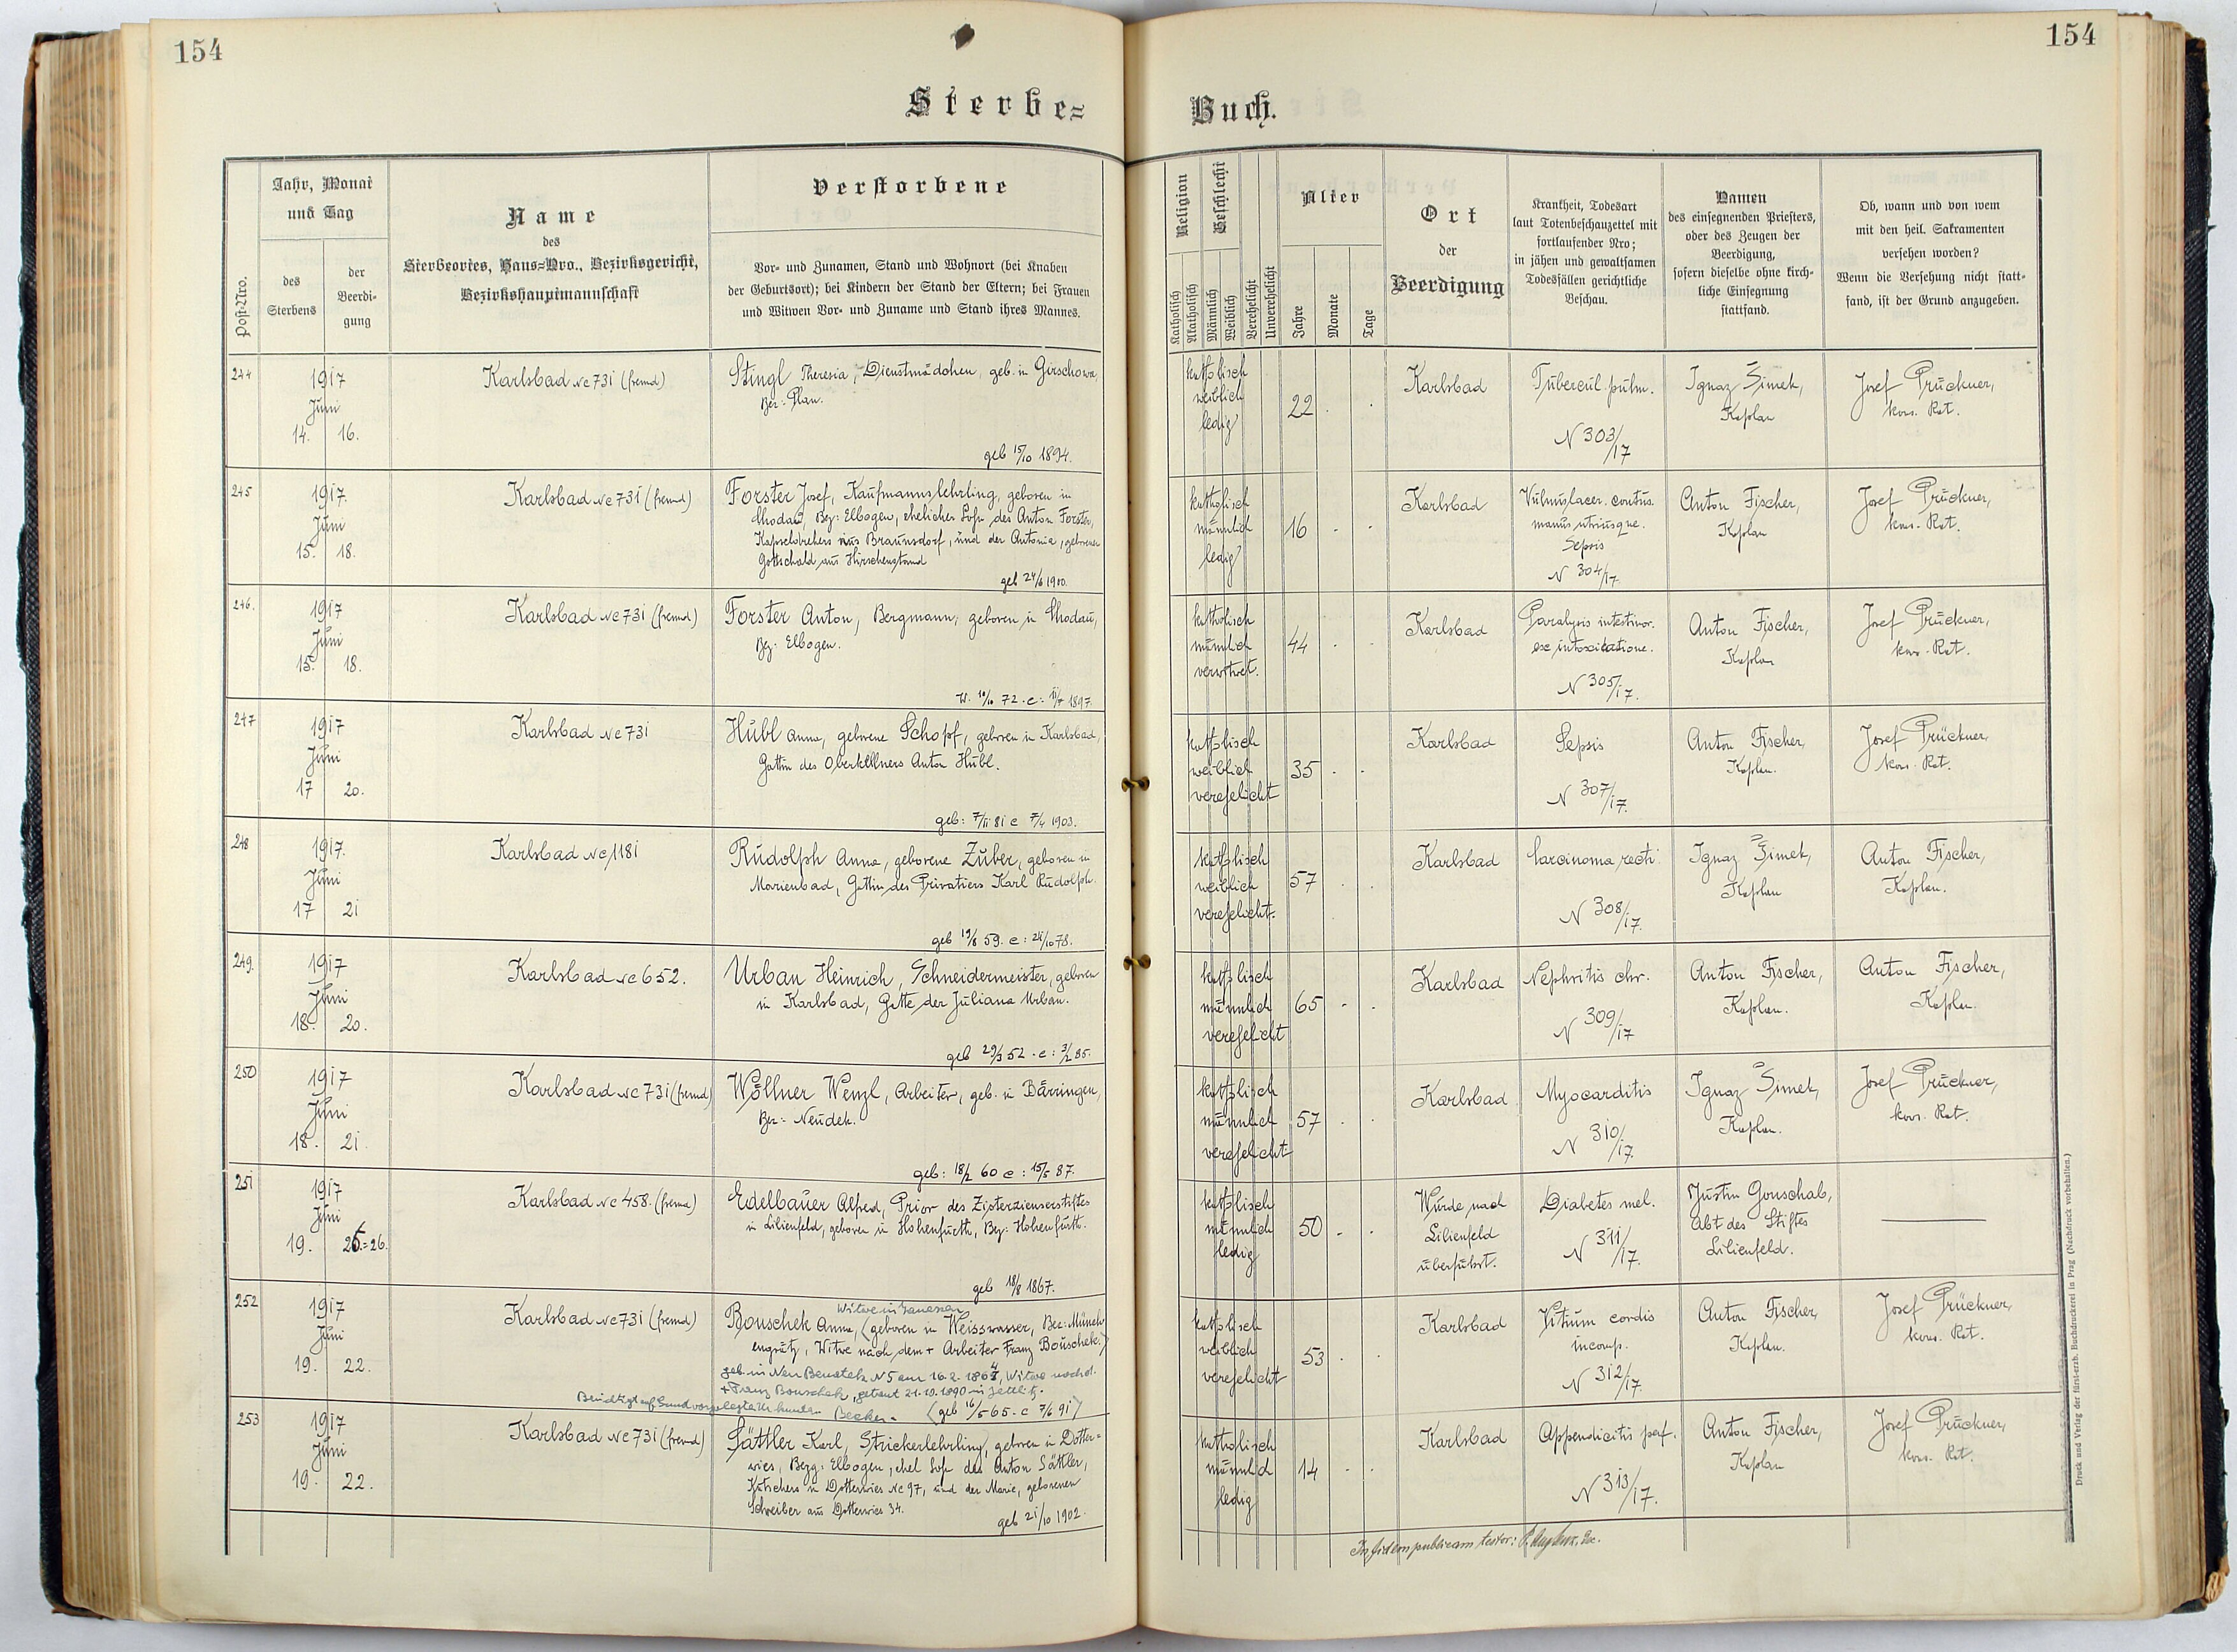 154
154
Sterbe=
Buch.
Post-Nro.
Jahr, Monat
und Tag
des
Sterbens
der
Beerdi-
gung
Name
des
Sterbeortes, Haus=Nro., Bezirksgericht,
Bezirkshauptmannschaft
Verstorbene
Vor- und Zunamen, Stand und Wohnort (bei Knaben
der Geburtsort); bei Kindern der Stand der Eltern; bei Frauen
und Witwen Vor- und Zuname und Stand ihres Mannes.
Religion
Katholisch
Akatholisch
Geschlecht
Männlich
Weiblich
Verehelicht
Unverehelicht
Alter
Jahre
Monate
Tage
Ort
der
Beerdigung
Krankheit, Todesart
laut Totenbeschauzettel mit
fortlaufender Nro;
in jähen und gewaltsamen
Todesfällen gerichtliche
Beschau.
Namen
des einsegnenden Priesters,
oder des Zeugen der
Beerdigung,
sofern dieselbe ohne kirch-
liche Einsegnung
stattfand.
Ob, wann und von wem
mit den heil. Sakramenten
versehen worden?
Wenn die Versehung nicht statt-
fand, ist der Grund anzugeben.
244
1917
Juni
14. 16.
Karlsbad Nc 731 (fremd)
Stingl Theresia, Dienstmädchen, geb. in Girschowa,
Bez: Plan.
geb 15/10 1894.
katholisch
weiblich
ledig
22
Karlsbad
Tubercul. pulm.
N 303/17
Ignaz Šimek,
Kaplan
Josef Prückner,
kons. Rat.
245
1917.
Juni
15. 18.
Karlsbad Nc 731 (fremd)
Forster Josef, Kaufmannslehrling, geboren in
Chodau, Bez: Elbogen, ehelicher Sohn des Anton Forster,
Kapseldrehers aus Braunsdorf, und der Antonia, geborener
Gottschald aus Hirschenstand
geb 24/6 1900.
katholisch
männlich
ledig
16
Karlsbad
Vulnus lacer. contus.
manus utriusque.
Sepsis
N 304/17.
Anton Fischer,
Kaplan
Josef Prückner,
kons. Rat.
246.
1917
Juni
15. 18.
Karlsbad Nc 731 (fremd)
Forster Anton, Bergmann, geboren in Chodau,
Bez: Elbogen.
72. c: 1897.
katholisch
männlich
verwitwet.
44
Karlsbad
Paralysis intestinor.
ex intoxicatione.
N 305/17.
Anton Fischer,
Kaplan
Josef Prückner,
kons. Rat.
247
1917
Juni
17 20.
Karlsbad Nc 731
Hübl Anna, geborene Schopf, geboren in Karlsbad,
Gattin des Oberkellners Anton Hübl.
geb: 7/11 81 c 7/4 1903.
katholisch
weiblich
verehelicht
35
Karlsbad
Sepsis
N 307/17.
Anton Fischer,
Kaplan.
Josef Prückner,
kons. Rat.
248
1917.
Juni
17 21
Karlsbad Nc 1181
Rudolph Anna, geborene Zuber, geboren in
Marienbad, Gattin des Privatiers Karl Rudolph.
geb 19/8 59. c: 24/10 78.
katholisch
weiblich
verehelicht.
57
Karlsbad
Carcinoma recti
N 308/17.
Ignaz Šimek,
Kaplan
Anton Fischer,
Kaplan.
249.
1917
Juni
18. 20.
Karlsbad Nc 652.
Urban Heinrich, Schneidermeister, geboren
in Karlsbad, Gatte der Juliana Urban.
geb 29/3 52. c: 3/2 85.
katholisch
männlich
verehelicht
65
Karlsbad
Nephritis chr.
N 309/17
Anton Fischer,
Kaplan.
Anton Fischer,
Kaplan.
250
1917
Juni
18. 21.
Karlsbad Nc 731 (fremd)
Wöllner Wenzl, Arbeiter, geb. in Bärringen,
Bez: Neudek.
geb: 18/2 60 c: 15/5 87.
katholisch
männlich
verehelicht
57
Karlsbad
Myocarditis
N 310/17
Ignaz Šimek,
Kaplan.
Josef Prückner,
kons. Rat.
251
1917
Juni
19. 25.=26.
Karlsbad Nc 458. (fremd)
Edelbauer Alfred, Prior des Zisterzienserstiftes
in Lilienfeld, geboren in Hohenfurth, Bez: Hohenfurth.
geb 18/8 1867.
katholisch
männlich
ledig
50
Wurde nach
Lilienfeld
überführt.
Diabetes mel.
N 311/17.
Justin Gonschab,
Abt des Stiftes
Lilienfeld.
252
1917
Juni
19. 22.
Karlsbad Nc 731 (fremd)
Witwe in
Bouschek Anna, (geboren in Weisswasser, Bez: Münch-
engrätz, Witwe nach dem + Arbeiter Franz Bouschek.)
geb. in Neu Benatek N 5 am 16. 2. 1864, Witwe nach d.
+ Franz Bouschek, getraut 21. 10. 1890 in Zettlitz.
Berichtigt auf Grund vorgelegter Urkunden Becker.
(geb 16/5 65. c 7/6 91)
katholisch
weiblich
verehelicht
53
Karlsbad
Vitium cordis
incomp.
N 312/17.
Anton Fischer,
Kaplan.
Josef Prückner,
kons. Rat.
253
1917
Juni
19. 22.
Karlsbad Nc 731 (fremd)
Sättler Karl, Strickerlehrling, geboren in Dotter=
wies, Bezg: Elbogen, ehel Sohn des Anton Sättler,
Kutschers in Dotterwies Nc 97, und der Marie, geborenen
Schreiber aus Dotterwies 34.
geb 21/10 1902.
katholisch
männlich
ledig
14
Karlsbad
Appendicitis perf.
N 313/17.
Anton Fischer,
Kaplan
Josef Prückner,
kons. Rat.
In fidem publicam testor:
Druck und Verlag der fürst-erzb. Buchdruckerei in Prag (Nachdruck vorbehalten.)